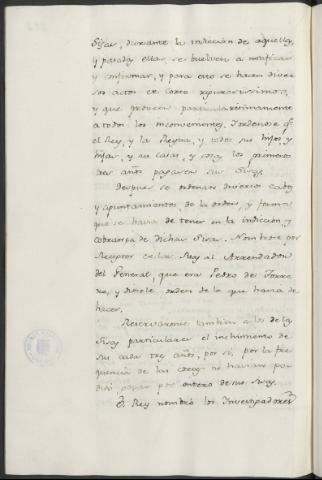 Sisas, durante la indiccion de aquellas,
y pasadas ellas, se buelven a ratificar
y confirmar, y para esto se hacen diver
sos actos en Cortes
y que probeen
a todos los inconvenientes. Ordenose q.e
el Rey, y la Reyna, y todos sus hijos, y
hijas, y sus casas, y los primeros
tres años pagasen sus Sisas.
Despues se ordenan diversos Cabos
y apuntamientos de la orden, y forma
que se havia de tener en la indiccion y
cobranza de dichas Sisas. Nombrose por
Receptor el Rey al Arrendador
del General, que era Pedro de Torre
, y diosele orden de la que havia de
hacer.
Reservaronse tambien a los de las
Sisas particulares el
sus cada tres años, por si, por la fre
quencia de las cosas no havian po
dido pagar por entero de sus Sisas.
El Rey nombró los Investigadores